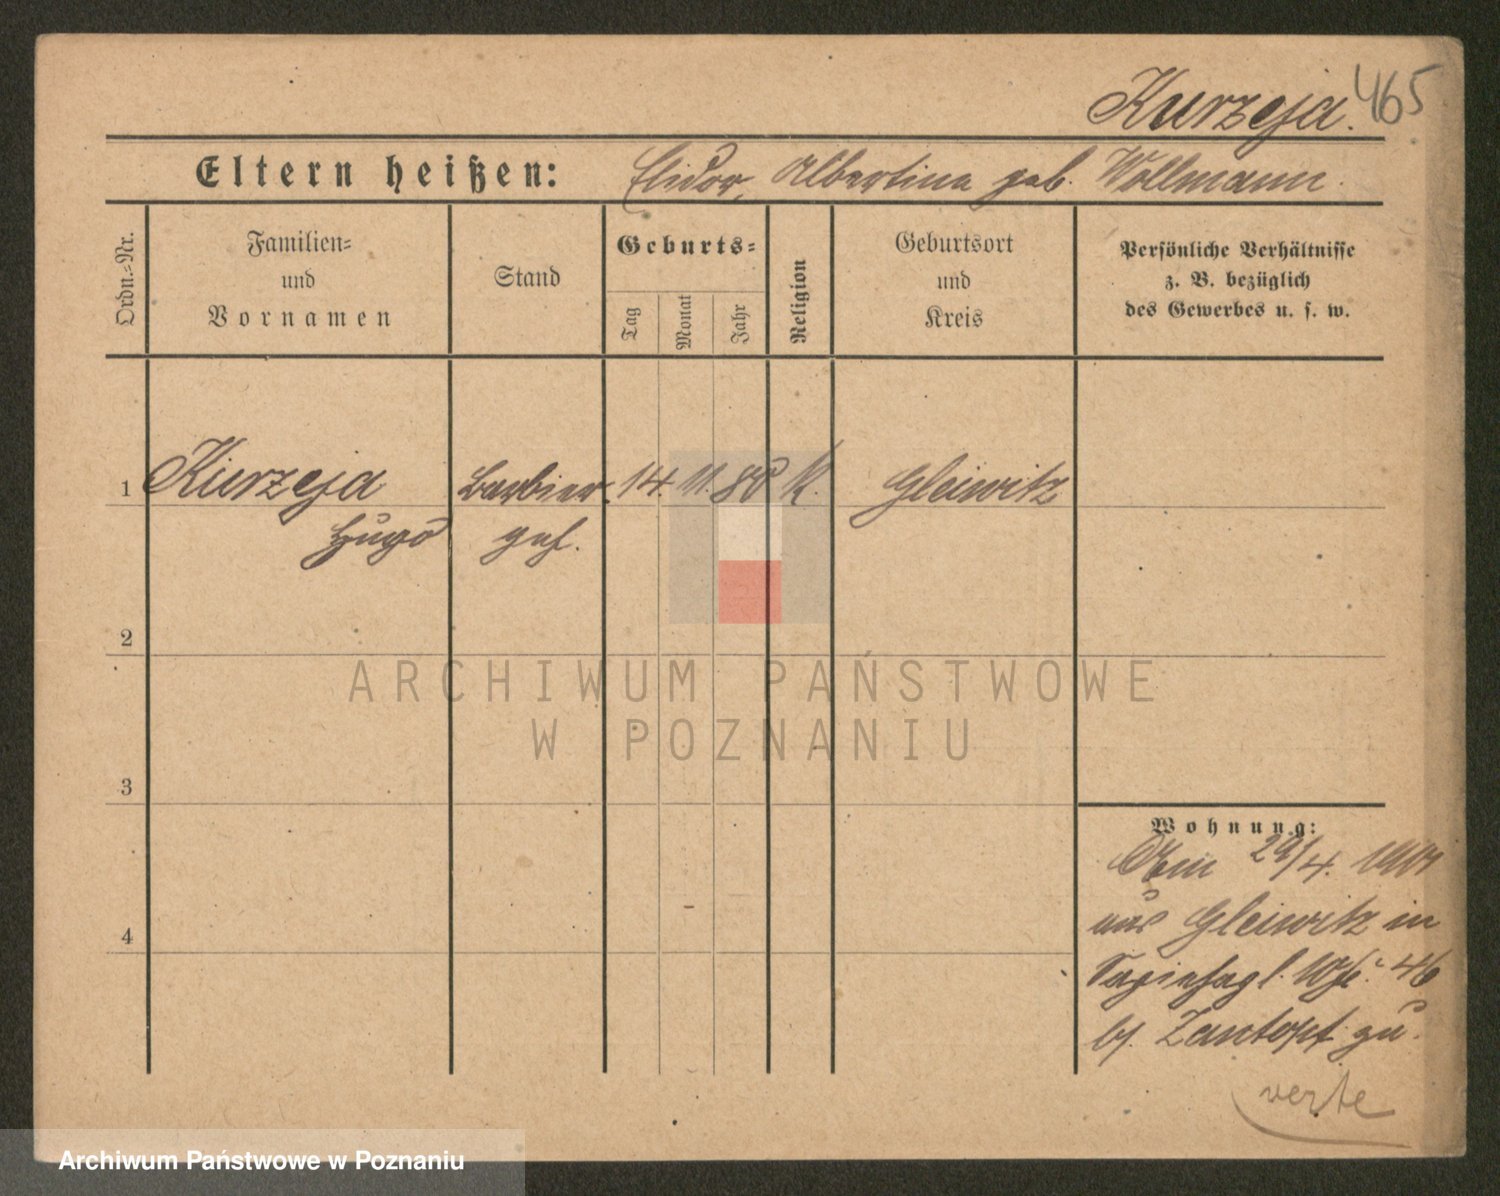 Kurzeja. 465
Eltern heißen: Elidor, Albertina geb. Wollmann.
Ordn.=Nr.
Familien=
und
Vornamen
Stand
Geburts=
Tag
Monat
Jahr
Religion
Geburtsort
und
Kreis
Persönliche Verhältnisse
z. B. bezüglich
des Gewerbes u. s. w.
1 Kurzeja Barbier 14. 11. 80 K. Gleiwitz
Hugo geh.
2
3
4
Wohnung:
29/4.
aus Gleiwitz in
46
bj. Zantopf zu.
verte
ARCHIWUM PAŃSTWOWE
W POZNANIU
Archiwum Państwowe w Poznaniu